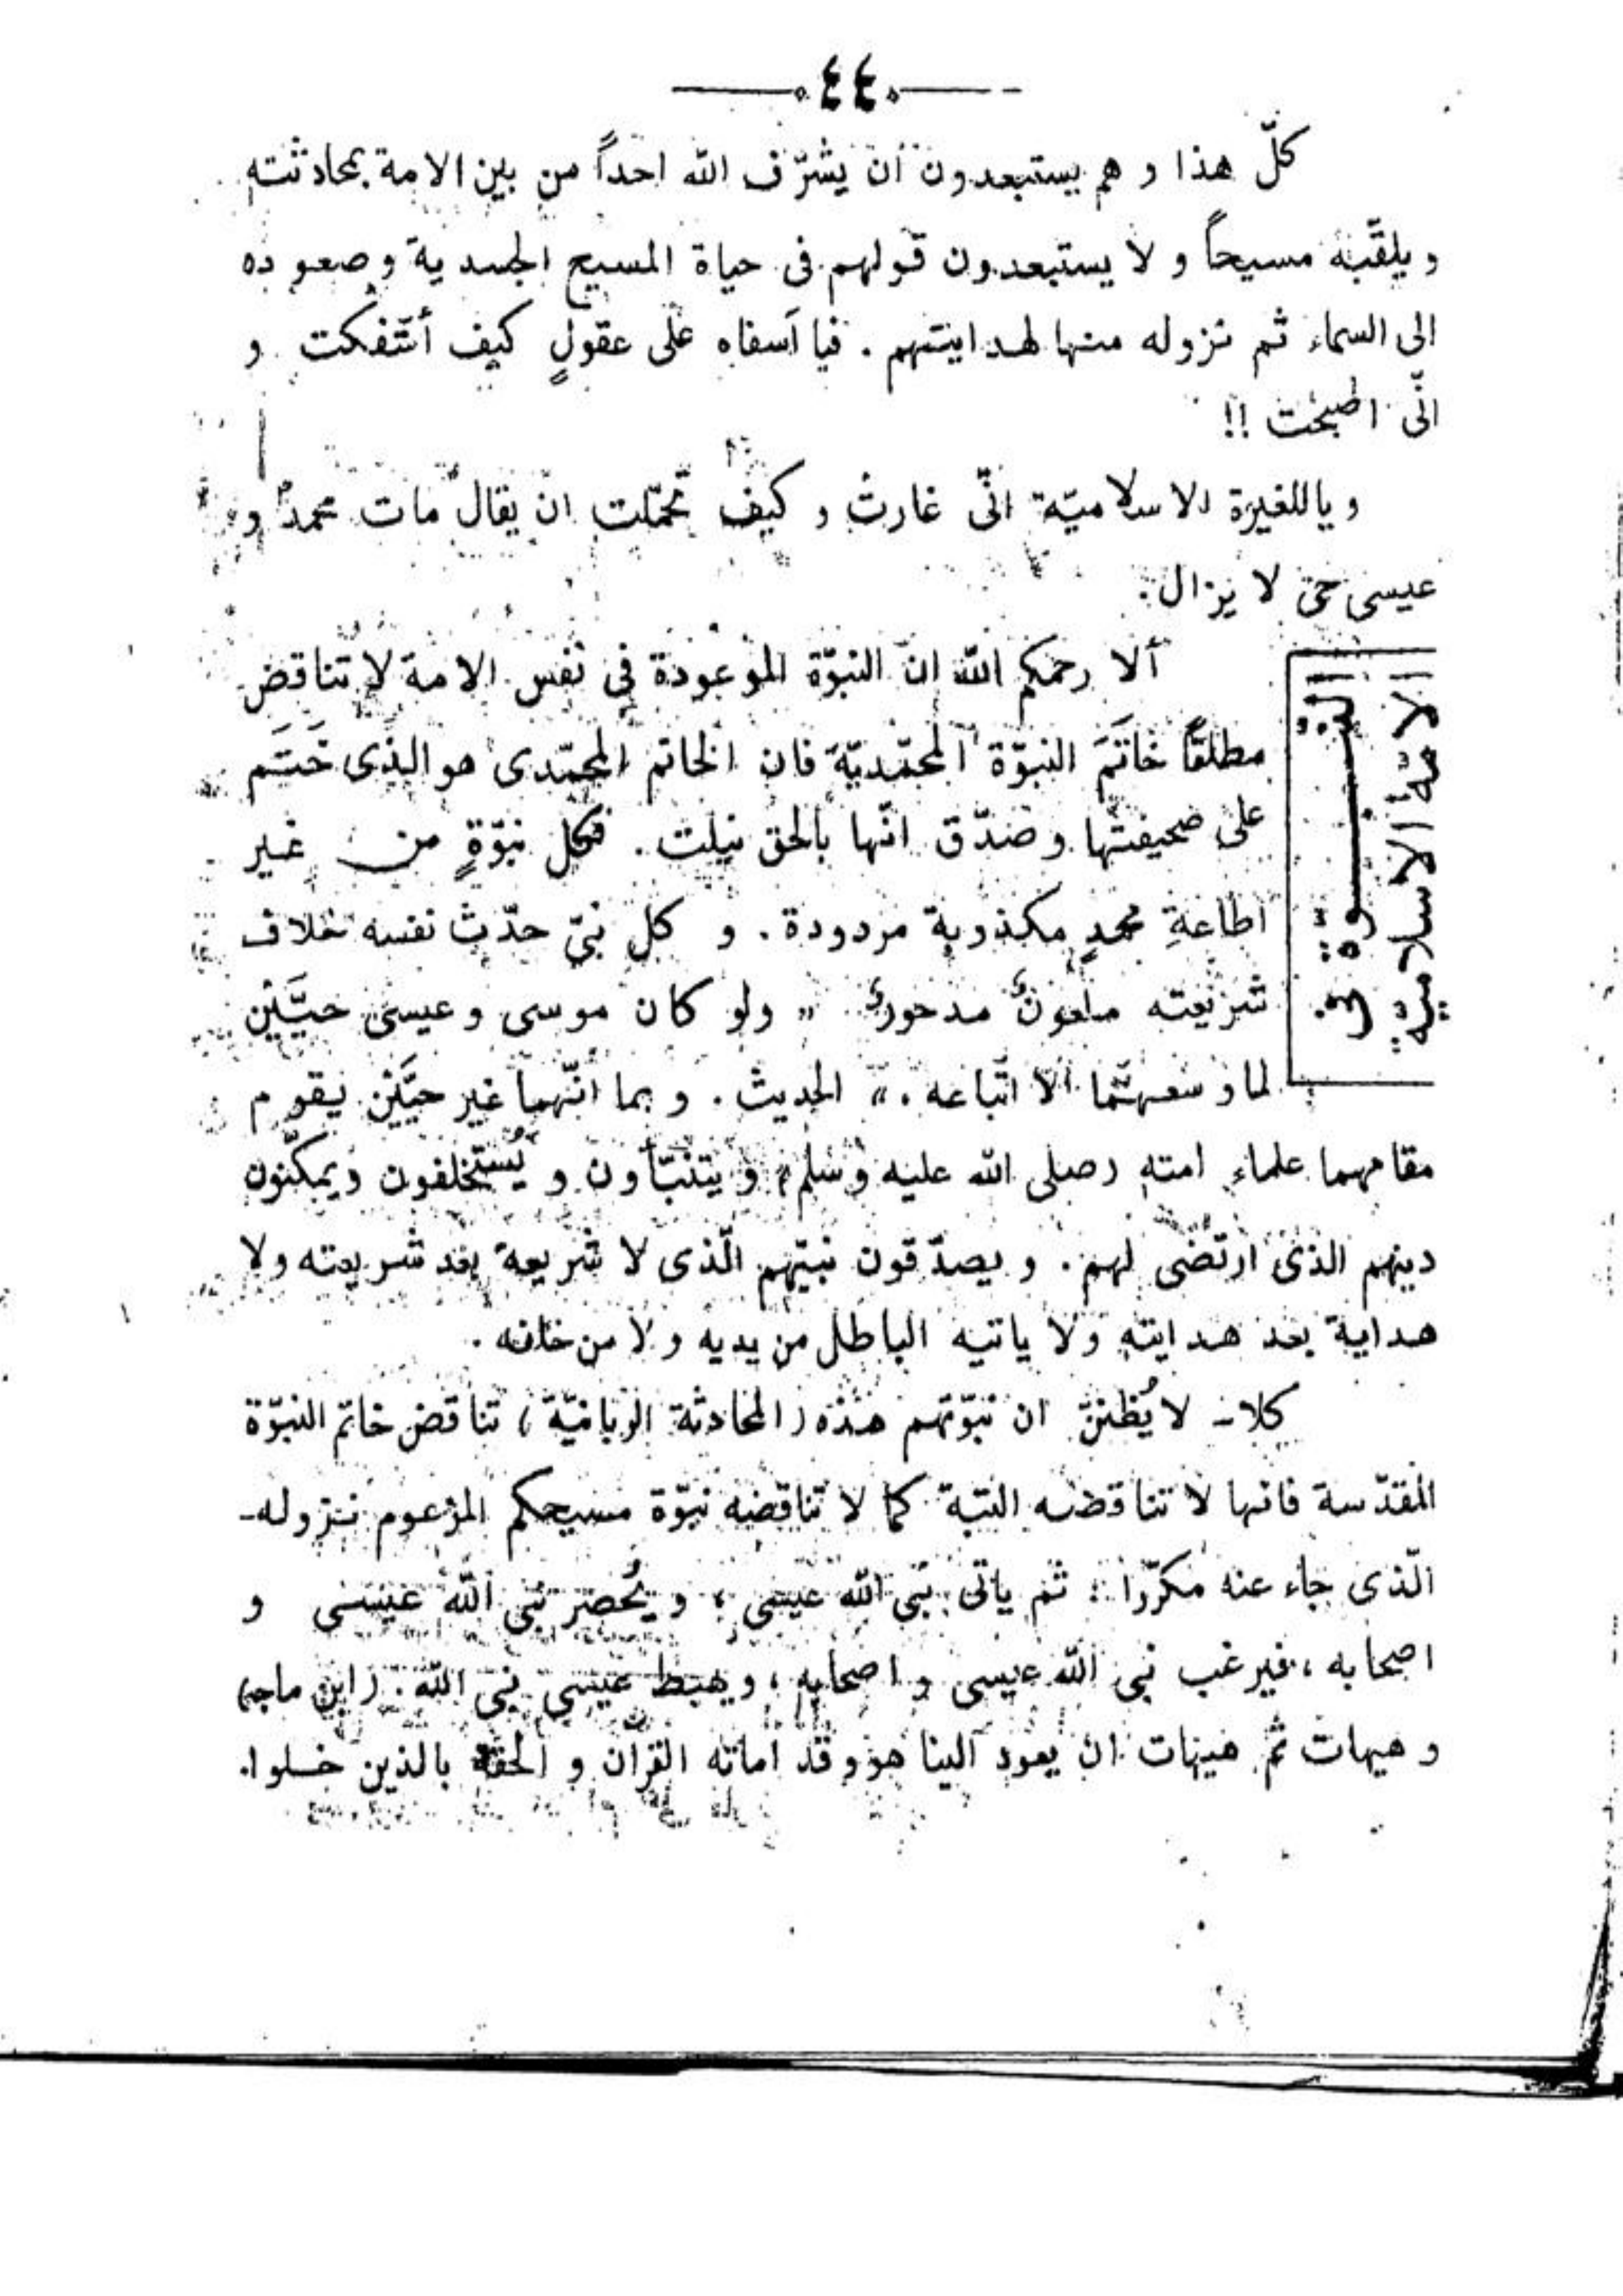 ٤٤
كلّ هذا و هم يستبعدون ان يشرّف الله احداً من بين الامة بمحادثته
و يلقّبه مسيحاً و لا يستبعدون قولهم فى حياة المسيح الجسدية و صعوده
الى السماء ثم نزوله منها لهدايتهم . فيا آسفاه على عقولٍ كيف أئتفكت و
انّى اصبحت !!
و ياللغيرة الاسلاميّة انّى غارت و كيف تحمّلت ان يقال مات محمد و
عيسى حىّ لا يزال .
النبوّة فى
الامة الاسلاميّة
ألا رحمكم الله ان النبوّة الموعودة فى نفس الامة لا تناقض
مطلقاً خاتَمَ النبوّة المحمّديّة فان الخاتم المحمّدى هو الذى خَتَم
على صحيفتها و صدّق انّها بالحق نيلت . فكل نبوّةٍ من غير
اطاعةِ محمدٍ مكذوبة مردودة . و كل نبىّ حدّث نفسه خلاف
شريعته ملعونٌ مدحورٌ " ولو كان موسى و عيسى حيَّيْن
لما وسعهتما الا اتّباعه . " الحديث . و بما انّهما غير حيَّيْن يقوم
مقامهما علماء امته (صلى الله عليه وسلم) و يتنبّأون و يُستخلفون ويمكّنون
دينهم الذى ارتضى لهم . و يصدّقون نبيّهم الّذى لا شريعة بعد شريعته ولا
هداية بعد هدايته ولا ياتيه الباطل من يديه و لا من خلفه .
كلا - لا يُظننّ ان نبوّتهم هذه (المحادثة الربانيّة) تناقض خاتم النبوّة
المقدّسة فانها لا تناقضه البتة كما لا تناقضه نبوّة مسيحكم المزعوم نزوله -
الّذى جاء عنه مكرّرا : ثم ياتى نبى الله عيسى ، و يُحصر نبى الله عيسى و
اصحابه ، فيرغب نبى الله عيسى و اصحابه ، و يهبط عيسى نبى الله . (ابن ماجه)
و هيهات ثم هيهات ان يعود الينا هو و قد اماته القران و الحقه بالذين خلوا.